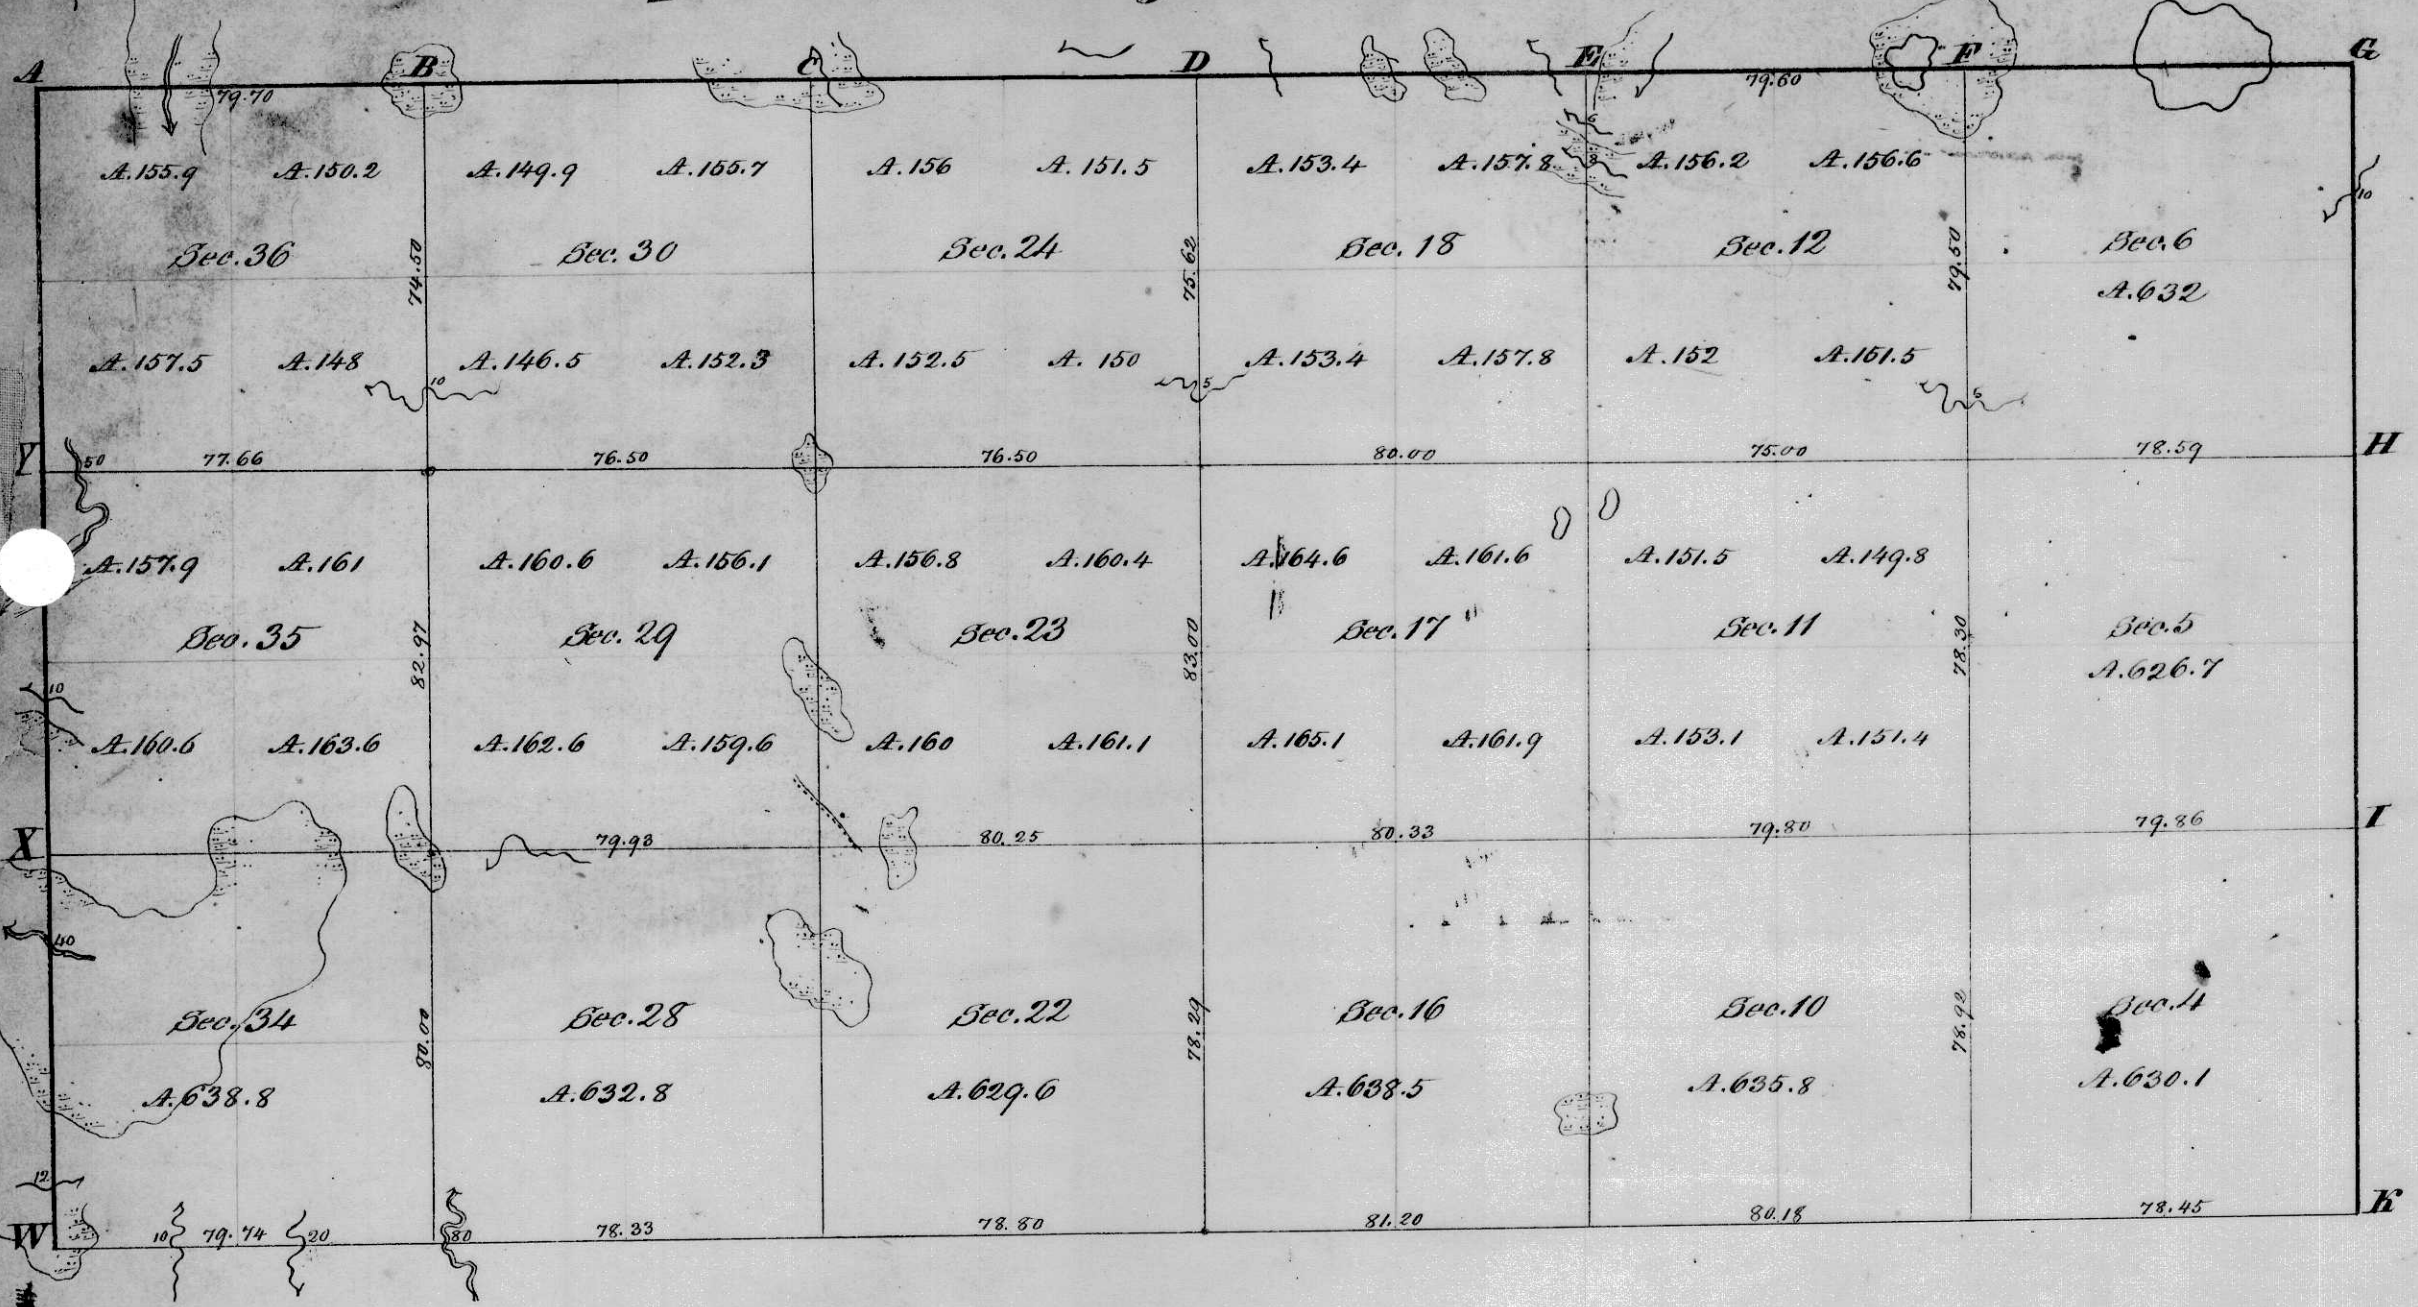 A B C D E F G
79.70 79.60
6
A.155.9 A.150.2 A.149.9 A.155.7 A.156 A.151.5 A.153.4 A.157.8 8 A.156.2 A.156.6
10
Sec.36 Sec.30 Sec.24 Sec.18 Sec.12 Sec.6
74.50 75.62 79.50
A.632
A.157.5 A.148 A.146.5 A.152.3 A.152.5 A.150 A.153.4 A.157.8 A.152 A.151.5
10 5 6
Y 50 77.66 76.50 76.50 80.00 75.00 78.59 H
A.157.9 A.161 A.160.6 A.156.1 A.156.8 A.160.4 A.164.6 A.161.6 A.151.5 A.149.8
Sec.35 Sec.29 Sec.23 Sec.17 Sec.11 Sec.5
82.97 83.00 78.30
A.626.7
10
A.160.6 A.163.6 A.162.6 A.159.6 A.160 A.161.1 A.165.1 A.161.9 A.153.1 A.151.4
X 79.93 80.25 80.33 79.80 79.86 I
40
Sec.34 Sec.28 Sec.22 Sec.16 Sec.10 Sec.4
80.00 78.29 78.92
A.638.8 A.632.8 A.629.6 A.638.5 A.635.8 A.630.1
12
W 10 79.74 20 80 78.33 78.80 81.20 80.18 78.45 K